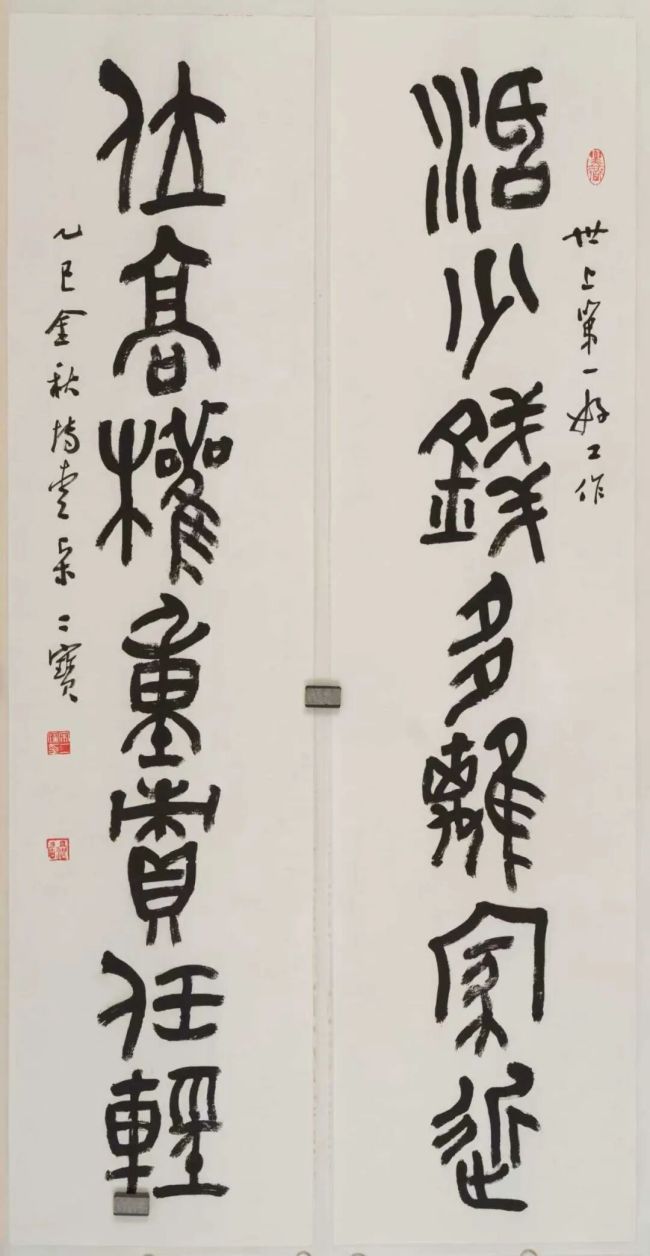 世上第一好工作
活少錢多離家近
位高權重責任輕
乙巳金秋
二寶